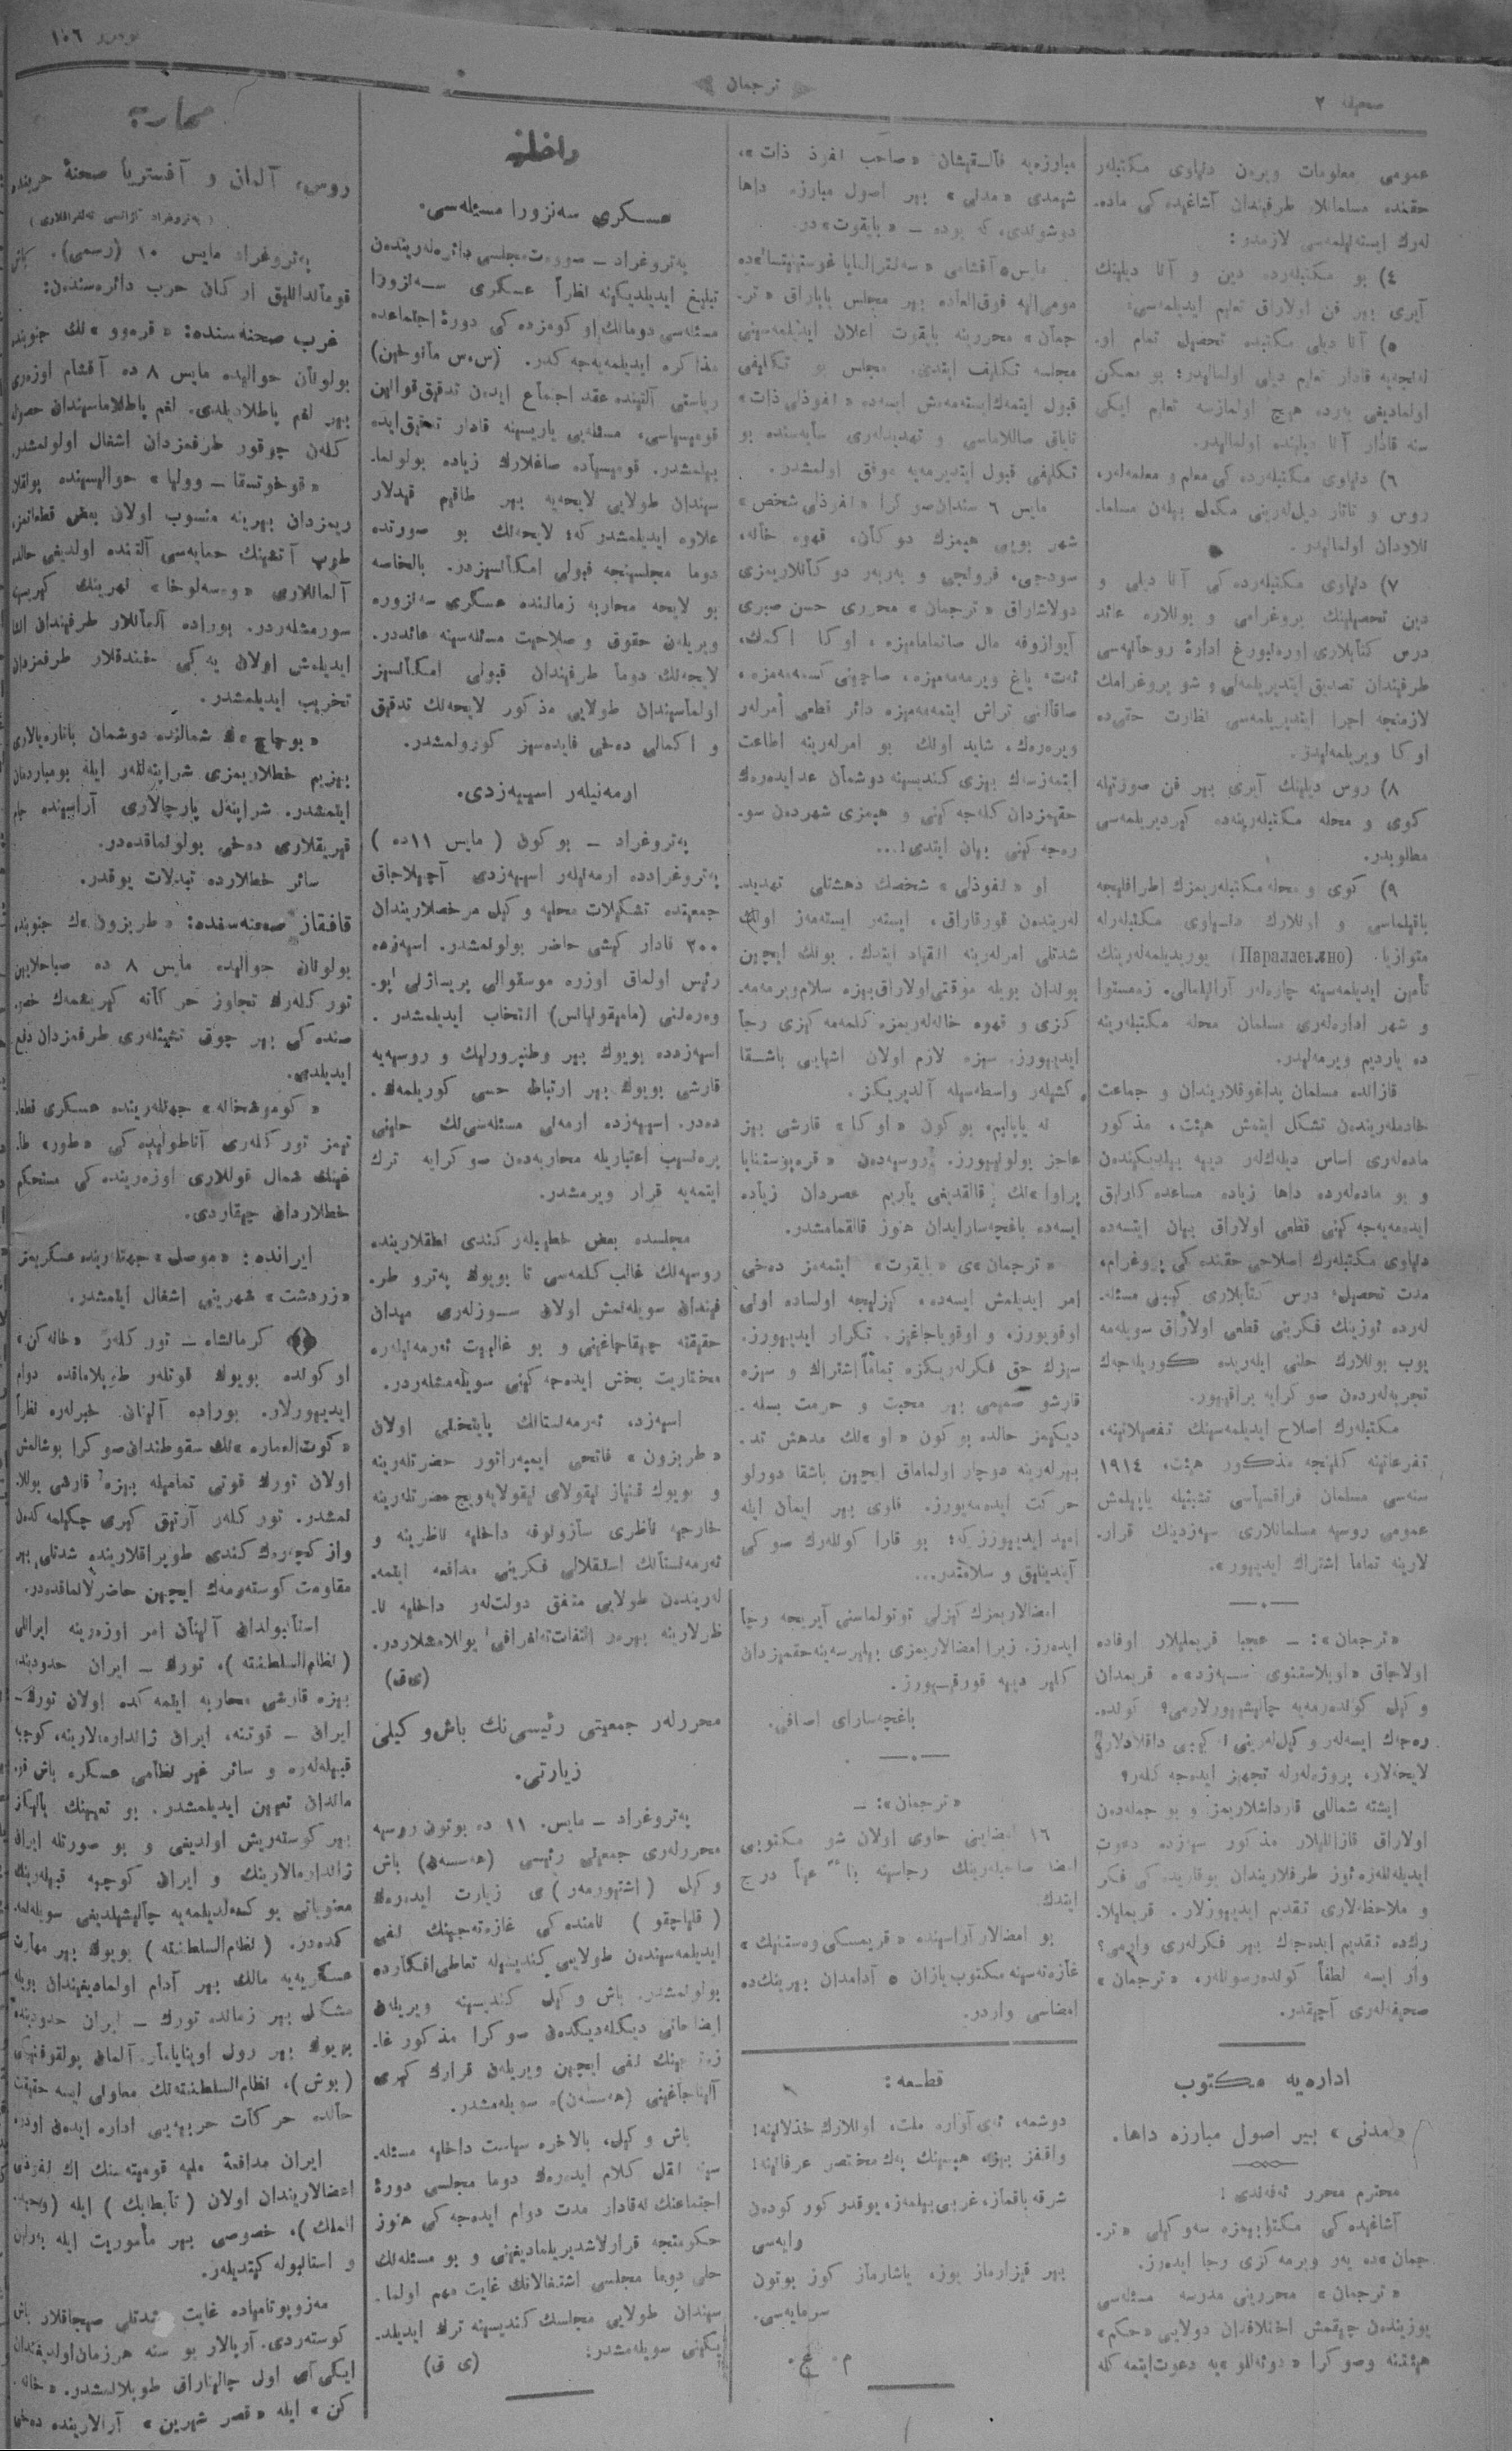 صحیفه ٢
ترجمان
نومرو ١٠٦
عمومی معلومات ویرەن دنیاوی مکتبلەر
حقندە مسلمانلار طرفیندان آشاغیدەکی مادە-
لەرك ایستەنیلمەسی لازمدر:
٤) بو مکتبلەردە دین و آنا دیلینك
آیری بیر فن اولاراق تعلیم ایدیلمەسی؛
٥) آنا دیلی مکتبدە تحصیل تمام او-
لنجەیە قادار تعلیم دیلی اولمالیدر؛ بو ممکن
اولمادیغی یردە هیچ اولمازسە تعلیم ایکی
سنە قادار آنا دیلیندە اولمالیدر.
٦) دنیاوی مکتبلەردەکی معلم و معلمەلەر،
روس و تاتار دیللەرینی مکمل بیلەن مسلما-
نلاردان اولمالیدر.
٧) دنیاوی مکتبلەردەکی آنا دیلی و
دین تحصیلینك پروغرامی و بونلارە عائد
درس کتابلاری اورەنبورغ ادارۀ روحانیەسی
طرفیندان تصدیق ایتدیریلمەلی و شو پروغرامك
لازمنجە اجرا ایتدیریلمەسی نظارت حقی دە
اوکا ویریلمەلیدر.
٨) روس دیلینك آیری بیر فن صورتیلە
کوی و محلە مکتبلەرینەدە کیردیریلمەسی
مطلوبدر.
٩) کوی و محلە مکتبلەریمزك اطرافلیجە
باقیلماسی و اونلارك دنیاوی مکتبلەرلە
متوازیا (Параллельно) یوریدیلمەلەرینك
تأمین ایدیلمەسینە چارەلەر آرانیلمالی. زەمستوا
و شهر ادارەلەری مسلمان محلە مکتبلەرینە
دە یاردیم ویرمەلیدر.
قازاندە مسلمان پداغوقلاریندان و جماعت
خادملەریندەن تشکل ایتمش هیئت، مذکور
مادەلەری اساس دیلەکلەر دییە بیلدیکیندەن
و بو مادەلەردە داها زیادە مساعدەکارلق
ایدەمەیەجەکینی قطعی اولاراق بیان ایتسەدە
دنیاوی مکتبلەرك اصلاحی حقندەکی پروغرام،
مدت تحصیل، درس کتابلاری کیبی مسئلە-
لەردە ئوزینك فکرینی قطعی اولاراق سویلەمە
یوب بونلارك حلنی ایلەریدە کوریلەجەك
تجربەلەردەن صوکرایە براقیور.
مکتبلەرك اصلاح ایدیلمەسینك تفصیلاتینە،
تفرعاتینە کلینجە مذکور هیئت، ١٩١٤
سنەسی مسلمان فراقسیاسی تشبثیلە یاپیلمش
عمومی روسیە مسلمانلاری سیەزدینك قرار-
لارینە تماما اشتراك ایدییور».
«ترجمان»: — عجبا قریملیلار اوفادە
اولاجاق «اوبلاستنوی سیەزد»ە قریمدان
وکیل کوندەرمەیە چالیشیورلارمی؟ کوندە-
رەجەك ایسەلەر وکیللەرینی نە کیبی داقلادلار،
لایحەلار، پروژەلەرلە تجهیز ایدەجەکلەر؟
ایشتە شماللی قارداشلاریمز و بو جملەدەن
اولاراق قازانلیلار مذکور سیەزدە دعوت
ایدیلەنلەرە ئوز طرفلاریندان یوقاریدەکی فکر
و ملاحظەلاری تقدیم ایدییورلار. قریملیلا-
ركدە تقدیم ایدەجەك بیر فکرلەری وارمی؟
وار ایسە لطفاً کوندەرسونلەر، «ترجمان»
صحیفەلەری آچیقدر.
ادارەیە مکتوب
«مدنی» بیر اصول مبارزە داها.
محترم محرر ئەفەندی!
آشاغیدەکی مکتوبیمزە سەوکیلی «تر-
جمان»دە یەر ویرمەکزی رجا ایدەرز.
«ترجمان» محررینی مدرسە مسئلەسی
یوزیندەن چیقمش اختلافدان دولایی «حکم»
هیئتنە وصوکرا «دوئەللو»یە دعوت ایتمەکلە
مبارزەیە قالقیشان «صاحب نفوذ ذات»،
شیمدی «مدنی» بیر اصول مبارزە داها
دوشوندی، کە بودە — «بایقوت»در.
مایس ٥ آقشامی «سەنترالنایا غوستینیتسا»دە
مومی‌الیە فوق‌العادە بیر مجلس یاپاراق «تر-
جمان» محررینە بایقوت اعلان ایدیلمەسینی
مجلسە تکلیف ایتدی. مجلس بو تکلیفی
قبول ایتمەك ایستەمەمش ایسەدە «نفوذلی ذات»
تایاق صاللاماسی و تهدیدلەری سایەسندە بو
تکلیفی قبول ایتدیرمەیە موفق اولمشدر.
مایس ٦ سندان صوکرا «نفوذلی شخص»
شهر بویی هیمزك دوکان، قهوە خانە،
سودجی، فرونجی و بەربەر دوکانلاریمزی
دولاشاراق «ترجمان» محرری حسن صبری
آیوازوفە مال صاتمامامیزە، اوکا اکمك،
ئەت، یاغ ویرمەمەمیزە، صاچینی کسمەمەمزە،
صاقالنی تراش ایتمەمەمیزە دائر قطعی امرلەر
ویرەرەك، شاید اونك بو امرلەرینە اطاعت
ایتمەزسەك بیزی کندیسینە دوشمان عد ایدەرەك
حقیمزدان کلەجەکینی و هیمزی شهردەن سو-
رەجەکینی بیان ایتدی!...
او «نفوذلی» شخصك دهشتلی تهدید-
لەریندەن قورقاراق، ایستەر ایستەمەز اونك
شدتلی امرلەرینە انقیاد ایتدك. بونك ایچین
بوندان بویلە موقتی اولاراق بیزە سلام ویرمەمە-
کزی و قهوە خانەلەریمزە کلمەمەکزی رجا
ایدییورز. سیزە لازم اولان اشیایی باشقا
کشیلەر واسطەسیلە آلدیریکز.
نە یاپالیم، بوکون «اوکا» قارشی بیز
عاجز بولونیورز. روسیەدەن «قرەپوستنایا
پراوا»نك قالقدیغی یاریم عصردان زیادە
ایسەدە باغچەسارایدان هنوز قالقمامشدر.
«ترجمان»ی «بایقوت» ایتمەمز دەخی
امر ایدیلمش ایسەدە، کیزلیجە اولسادە اونی
اوقویورز، و اوقویاجاغیز. تکرار ایدییورز:
سیزك حق فکرلەریکزە تماماً اشتراك و سیزە
قارشو صمیمی بیر محبت و حرمت بسلە-
دیکیمز حالدە بوکون «او»نك مدهش تد-
بیرلەرینە دوچار اولماماق ایچین باشقا دورلو
حرکت ایدەمەیورز. قاوی بیر ایمان ایلە
امید ایدییورز کە: بو قارا کونلەرك صوکی
آیدینلیق و سلامتدر...
امضالاریمزك کیزلی توتولماسنی آیریجە رجا
ایدەرز. زیرا امضالاریمزی بیلیرسەینە حقیمزدان
کلیر دییە قورقییورز.
باغچەسارای اصنافی.
«ترجمان»: —
١٦ امضایی حاوی اولان شو مکتوبی
امضا صاحبلەرینك رجاسینە بناءً عیناً درج
ایتدك.
بو امضالار آراسیندە «قریمسکی وەستنیك»
غازەتەسینە مکتوب یازان ٥ آدامدان بیرینك دە
امضاسی واردر.
قطعە:
دوشمە، ئەی آوارە ملت، اونلارك خذلانینە!
واقفز بیزە هپسینك پەك مختصر عرفانینە!
شرقە باقماز، غربی بیلمەز، یوقدر کورکودەن
وایەسی
بیر قیزارماز یوزە یاشارماز کوز بوتون
سرمایەسی.
م. ع.
داخلیە
عسکری سەنزورا مسئلەسی.
پەتروغراد — مەبعوث مجلسی دائرەلەریندەن
تبلیغ ایدیلدیکینە نظراً عسکری سەنزورا
مسئلەسی دومانك او کومزدەکی دورۀ اجتماعدە
مذاکرە ایدیلمەیەجەکدر. (س. س. مانوخین)
ریاستی آلتیندە عقد اجتماع ایدەن تدقیق قوانین
قومیسیاسی، مسئلەیی یاریسینە قادار تدقیق ایدە
بیلمشدر. قومیسیادە صاغلارك زیادە بولونما-
سیندان طولایی لایحەیە بیر طاقیم قیدلار
علاوە ایدیلمشدر کە؛ لایحەنك بو صورتدە
دوما مجلسینجە قبولی امکانسیزدر. بالخاصە
بو لایحە محاربە زمانندە عسکری سەنزورە
ویریلەن حقوق و صلاحیت مسئلەسینە عائددر.
لایحەنك دوما طرفیندان قبولی امکانسیز
اولماسیندان طولایی مذکور لایحەنك تدقیق
و اکمالی دەخی فایدەسیز کورولمشدر.
ارمەنیلەر اسییەزدی.
پەتروغراد — بوکون (مایس ١١دە)
پەتروغراددە ارمەنیلەر اسییەزدی آچیلاجاق
جمعیتدە تشکیلات محلیە و کیل مرخصلاریندان
٢٠٠ قادار کیشی حاضر بولونمشدر. اسیەزدە
رئیس اولماق اوزرە موسقوالی پریساژنی پو-
وەرەننی (مامیقونیانس) انتخاب ایدیلمشدر.
اسیەزددە بویوك بیر وطنپرورلیك و روسیەیە
قارشی بویوك بیر ارتباط حسی کوریلمەك-
دەدر. اسییەزدە ارمەنی مسئلەسی‌نك حلینی
برەنسیب اعتباریلە محاربەدەن صوکرایە ترك
ایتمەیە قرار ویرمشدر.
مجلسدە بعض خطیبلەر کندی نطقلاریندە
روسیەنك غالب کلمەسی تا بویوك پەترو طر-
فیندان سویلەنمش اولان سوزلەری میدان
حقیقتە چیقاجاغینی و بو غالبیت ئەرمەنیلەرە
مختاریت بخش ایدەجەکینی سویلەمشلەردر.
اسیەزد، ئەرمەنستانك پایتختی اولان
«طربزون» فاتحی ایمپەراتور حضرتلەرینە
و بویوك قنیاز نیقولای نیقولایەویچ حضرتلەرینە
خارجیە ناظری سازونوفە داخلیە ناظرینە و
ئەرمەنستانك استقلالی فکرینی مدافعە ایتمە-
لەریندەن طولایی متفق دولتلەر داخلیە نا-
ظرلارینە بیرەر التفات تەلغرافی یوللامشلاردر.
(ی ق)
محررلەر جمعیتی رئیسی‌نك باش وکیلی
زیارتی.
پەتروغراد — مایس. ١١ دە بوتون روسیە
محررلەری جمعیتی رئیسی (هەسسەن) باش
وکیل (اشتیورمەر)ی زیارت ایدەرەك
(قلیاچقو) نامندەکی غازەتەجینك نفی
ایدیلمەسیندەن طولایی کندیسیلە تعاطی افکاردە
بولونمشدر. باش وکیل کندیسینە ویریلەن
ایضاحاتی دیکلەدیکدەن صوکرا مذکور غا-
زەتەجینك نفی ایچین ویریلەن قرارك کیری
آلیناجاغینی (هەسسەن)ە سویلەمشدر.
باش وکیل، بالاخرە سیاست داخلیە مسئلە-
سینە نقل کلام ایدەرەك دوما مجلسی دورۀ
اجتماعنك نەقادار مدت دوام ایدەجەکی هنوز
حکومتجە قرارلاشدیریلمادیغینی و بو مسئلەنك
حلی دوما مجلسی اشتغالاتنك غایت مهم اولما-
سیندان طولایی مجلسك کندیسینە ترك ایدیلد-
یکینی سویلەمشدر:
(ی ق)
محاربە
روس، آلمان و آفستریا صحنۀ حربندە
(پەتروغراد آژانسی تەلغرافلاری)
پەتروغراد مایس ١٠ (رسمی). باش
قوماندانلیق ارکان حرب دائرەسندەن:
غرب صحنەسندە: «قرەوو»نك جنوبندە
بولونان حوالیدە مایس ٨ دە آقشام اوزەری
بیر لغم پاطلادیلدی. لغم پاطلاماسیندان حصولە
کلەن چوقور طرفمزدان اشغال اولونمشدر.
«قوخوتسقا — وولیا» حوالیسیندە پولقلا-
ریمزدان بیرینە منسوب اولان بعض قطعاتمز،
طوپ آتشینك حمایەسی آلتندە اولدیغی حالدە
آلمانلاری «وەسەلوخا» نهرینك کیریسینە
سورمشلەردر. بورادە آلمانلار طرفیندان انشا
ایدیلمش اولان یەکی خندقلار طرفمزدان
تخریب ایدیلمشدر.
«بوچاچ»ك شمالندە دوشمان باتارەیالاری
بیزیم خطلاریمزی شراپنەللەر ایلە بومباردمان
ایتمشدر. شراپنەل پارچالاری آراسیندە جام
قیریقلاری دەخی بولونماقدەدر.
سائر خطلاردە تبدلات یوقدر.
قافقاز صحنەسندە: «طربزون»ك جنوبندە
بولونان حوالیدە مایس ٨ دە صباحلایین
تورکلەرك تجاوز حرکاتە کیریشمەك خصو-
صندەکی بیر چوق تشبثلەری طرفمزدان دفع
ایدیلدی.
«کوموشخانە» جهتلەریندە عسکری قطعا-
تیمز تورکلەری آناطولیدەکی «طور» طا-
غینك شمال قوللاری اوزەریندەکی مستحکم
خطلاردان چیقاردی.
ایراندە: «موصل» جهتلەریندە عسکریمز
«زردشت» شهرینی اشغال ایتمشدر.
کرمانشاە — تورکلەر «خانەکن»
اوکوندە بویوك قوتلەر طوپلاماقدە دوام
ایدییورلار. بورادە آلینان خبرلەرە نظراً
«کوت‌العمارە»نك سقوطندان صوکرا بوشالمش
اولان تورك قوتی تمامیلە بیزە قارشی یوللا-
نمشدر. تورکلەر آرتیق کیری چکیلمەکدەن
وازکچەرەك کندی طوپراقلاریندە شدتلی بیر
مقاومت کوستەرمەك ایچین حاضرلانماقدەدر.
استانبولدان آلینان امر اوزەرینە ایرانلی
(نظام‌السلطنە)، تورك — ایران حدودندە
بیزە قارشی محاربە ایتمەکدە اولان تورك —
ایران — قوتنە، ایران ژاندارمەلارینە، کوچبە
قبیلەلەرە و سائر غیر نظامی عسکرە باش قو-
ماندان تعیین ایدیلمشدر. بو تعیینك یالیکز
بیر کوستەریش اولدیغی و بو صورتلە ایران
ژاندارمالارینك و ایران کوچبە قبیلەلەرینك
معنویاتی یوکسەلدیلمەیە چالیشیلدیغی سویلەنمە-
کدەدر. (نظام‌السلطنە) بویوك بیر مهارت
عسکریەیە مالك بیر آدام اولمادیغیندان بویلە
مشکل بیر زماندە تورك — ایران حدودندە
بویوك بیر رول اوینایاماز. آلمان پولقوفنیکی
(بوش)، نظام‌السلطنەنك معاونی ایسە حقیقت
حالدە حرکات حربیەیی ادارە ایدەن اودر.
ایران مدافعۀ ملیە قومیتەسنك اك نفوذلی
اعضالاریندان اولان (تابطابك) ایلە (وحید-
الملك)، خصوصی بیر مأموریت ایلە بەرلین
و استانبولە کیتدیلەر.
مەزوپوتامیادە غایت شدتلی صیجاقلار باش
کوستەردی. آرپالار بو سنە هر زمان اولدیغندان
ایکی آی اول چالیناراق طوپلانمشدر. «خانە-
کن» ایلە «قصر شیرین» آرالاریندە دەخی